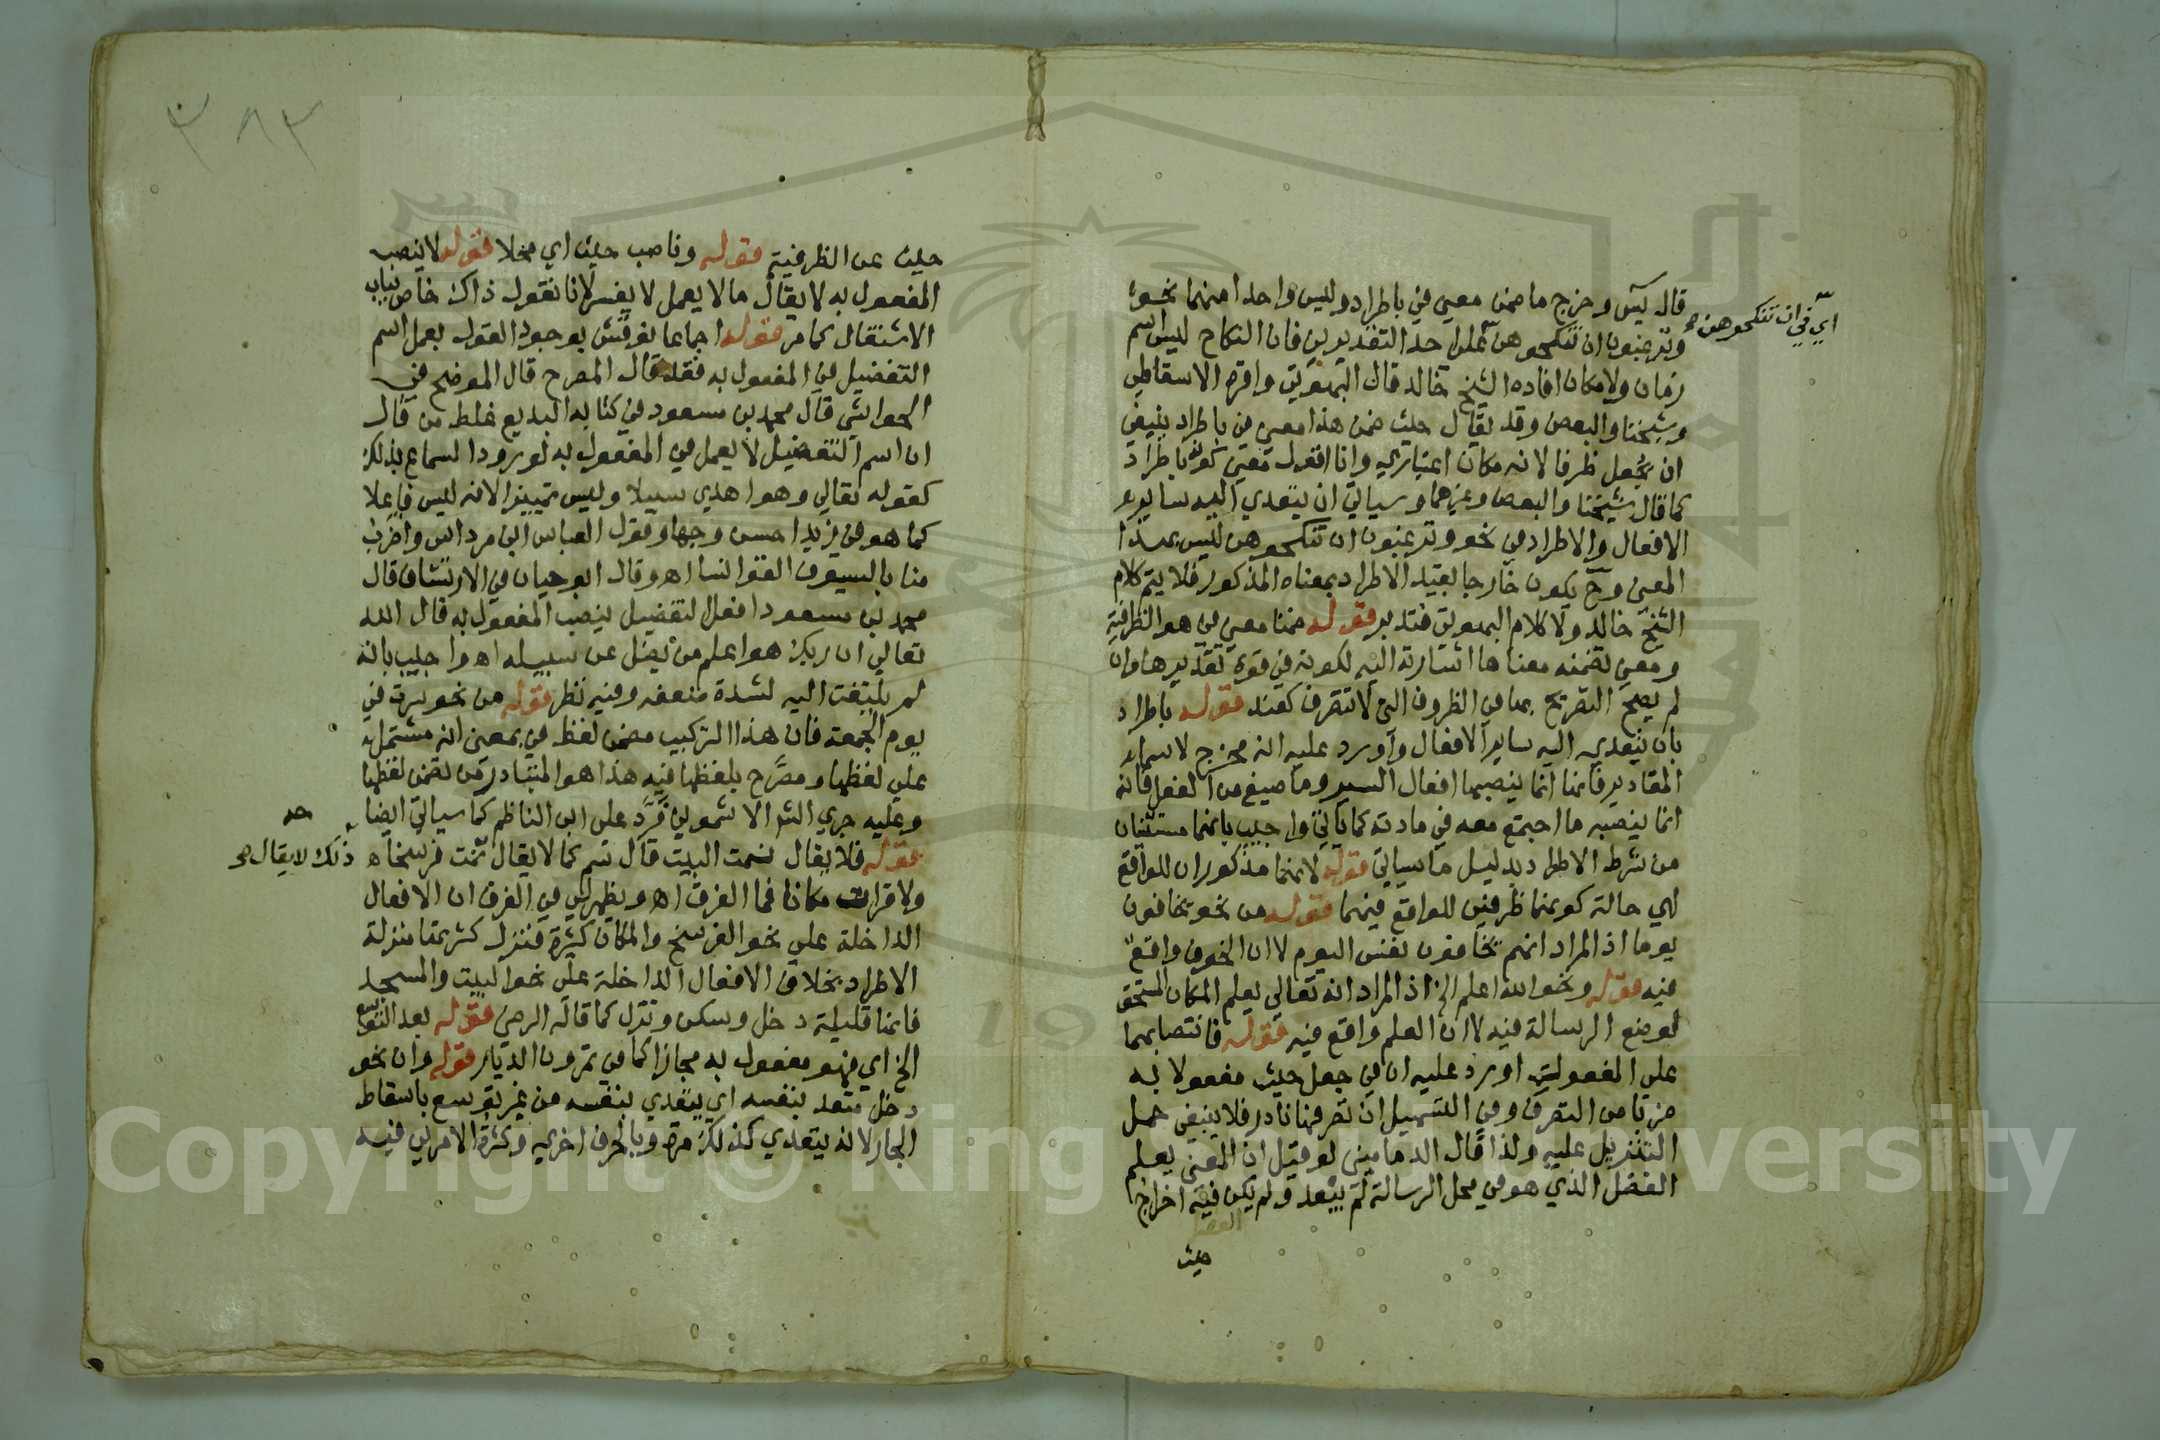 قال يس وخرج ما ضمن معنى في باطراد وليس واحدا منهما نحو
وترغبون ان تنكحوهن على احد التقديرين فان النكاح ليس اسم
اي في ان تنكحوهن
زمان ولا مكان افاده الشيخ خالد قال البهوتي واقره الاسقاطي
وشيخنا والبعض وقد يقال حيث ضمن هذا معنى في باطراد ينبغي
ان يجعل ظرفا لانه مكان اعتباري وانا اقول معنى كونه باطراد
كما قال شيخنا والبعض وغيرهما وسياتي ان يتعدى اليه ساير
الافعال والاطراد في نحو وترغبون ان تنكحوهن ليس بهذا
المعنى وح يكون خارجا بقيد الاطراد بمعناه المذكور فلا يتم كلام
الشيخ خالد ولا كلام البهوتي فتدبر قوله ضمنا معنى في هو الظرفية
ومعنى تضمنه معناها اشارته اليه لكونه في قوة تقديرها وان
لم يصح التصريح بها في الظروف التي لا تتصرف كعند قوله باطراد
بان يتعدى اليه ساير الافعال واورد عليه انه مخرج لاسماء
المقادير فانها انما ينصبها افعال السير وما صيغ من الفعل فانه
انما ينصبه ما اجتمع معه في مادته كما ياتي واجيب بانهما مستثنيان
من شرط الاطراد بدليل ما سياتي قوله لانهما مذكوران للواقع
اي حالة كونهما ظرفين للواقع فيهما قوله من نحو يخافون
يوما اذ المراد انهم يخافون نفس اليوم لا ان الخوف واقع
فيه قوله ونحو الله اعلم الخ اذ المراد انه تعالى يعلم المكان المستحق
لوضع الرسالة فيه لا ان العلم واقع فيه قوله فانتصابهما
على المفعولية اورد عليه ان في جعل حيث مفعولا به
ضربا من التصرف وفي التسهيل ان تصرفها نادر فلا ينبغي حمل
التنزيل عليه ولذا قال الدماميني لو قيل ان المعنى يعلم
الفضل الذي هو في محل الرسالة لم يبعد ولم يكن فيه اخراج
حيث
٣٨٣
حيث عن الظرفية قوله وناصب حيث اي محلا قوله لا ينصب
المفعول به لا يقال ما لا يعمل لا يفسر لانا نقول ذاك خاص بباب
الاشتغال كما مر قوله اجماعا نوقش بوجود القول بعمل اسم
التفضيل في المفعول به فقد قال المصرح قال الموضح في
الحواشي قال محمد بن مسعود في كتابه البديع غلط من قال
ان اسم التفضيل لا يعمل في المفعول به لورود السماع بذلك
كقوله تعالى وهو اهدى سبيلا وليس تمييزا لانه ليس فاعلا
كما هو في زيد احسن وجها وقول العباس ابن مرداس واضرب
منا بالسيوف القوانسا اه وقال ابو حيان في الارتشاف قال
محمد بن مسعود افعل التفضيل ينصب المفعول به قال الله
تعالى ان ربك هو اعلم من يضل عن سبيله اه واجيب بانه
لم يلتفت اليه لشدة ضعفه وفيه نظر قوله من نحو سرت في
يوم الجمعة فان هذا التركيب ضمن لفظ في بمعنى انه مشتمل
على لفظها ومصرح بلفظها فيه هذا هو المتبادر من تضمن لفظها
وعليه جرى الاشموني فرد على ابن الناظم كما سياتي ايضا
قوله فلا يقال نمت البيت قال سم كما لا يقال نمت فرسخا اه
ذلك لا يقال
ولا قرات مكانا فما الفرق اه ويظهر لي في الفرق ان الافعال
الداخلة على نحو الفرسخ والمكان كثيرة فنزل كثرتها منزلة
الاطراد بخلاف الافعال الداخلة على نحو البيت والمسجد
فانها قليلة دخل وسكن ونزل كما قاله الرضي قوله بعد التوسع
الخ اي فهو مفعول به مجازا كما في تمرون الديار قوله وان نحو
دخل متعد بنفسه اي يتعدى بنفسه من غير توسع باسقاط
الجار لانه يتعدى كذلك مرة وبالحرف اخرى وكثرة الامرين فيه